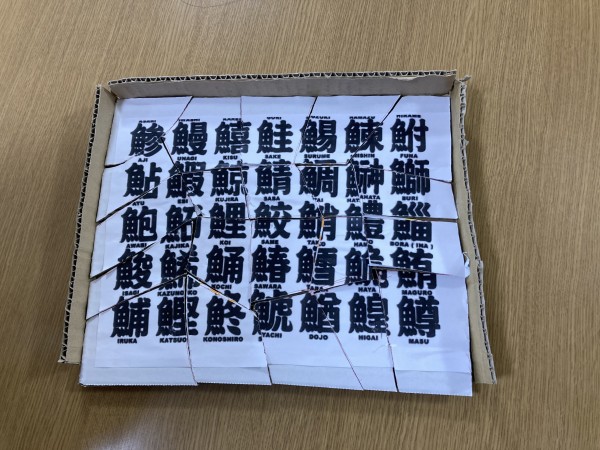 鯵 鰻 鱚 鮭 鯣 鰊 鮒
AJI UNAGI KISU SAKE SURUME NISHIN FUNA
鮎 鰕 鯨 鯖 鯛 鰰 鰤
AYU KUJIRA SABA TAI BURI
鮑 鮖 鯉 鮫 鮹 鱧 鯔
AWABI KAJIKA KOI SAME TAKO HAMO BORA (INA)
鯑 鯒 鰆 鱈 鮠 鮪
ISAGI KAZUNOKO KOCHI SAWARA TARA HAYA MAGURO
鯆 鰹 鮗 鯱 鰌 鰉 鱒
IRUKA KATSUO KONOSHIRO DOJO HIGAI MASU